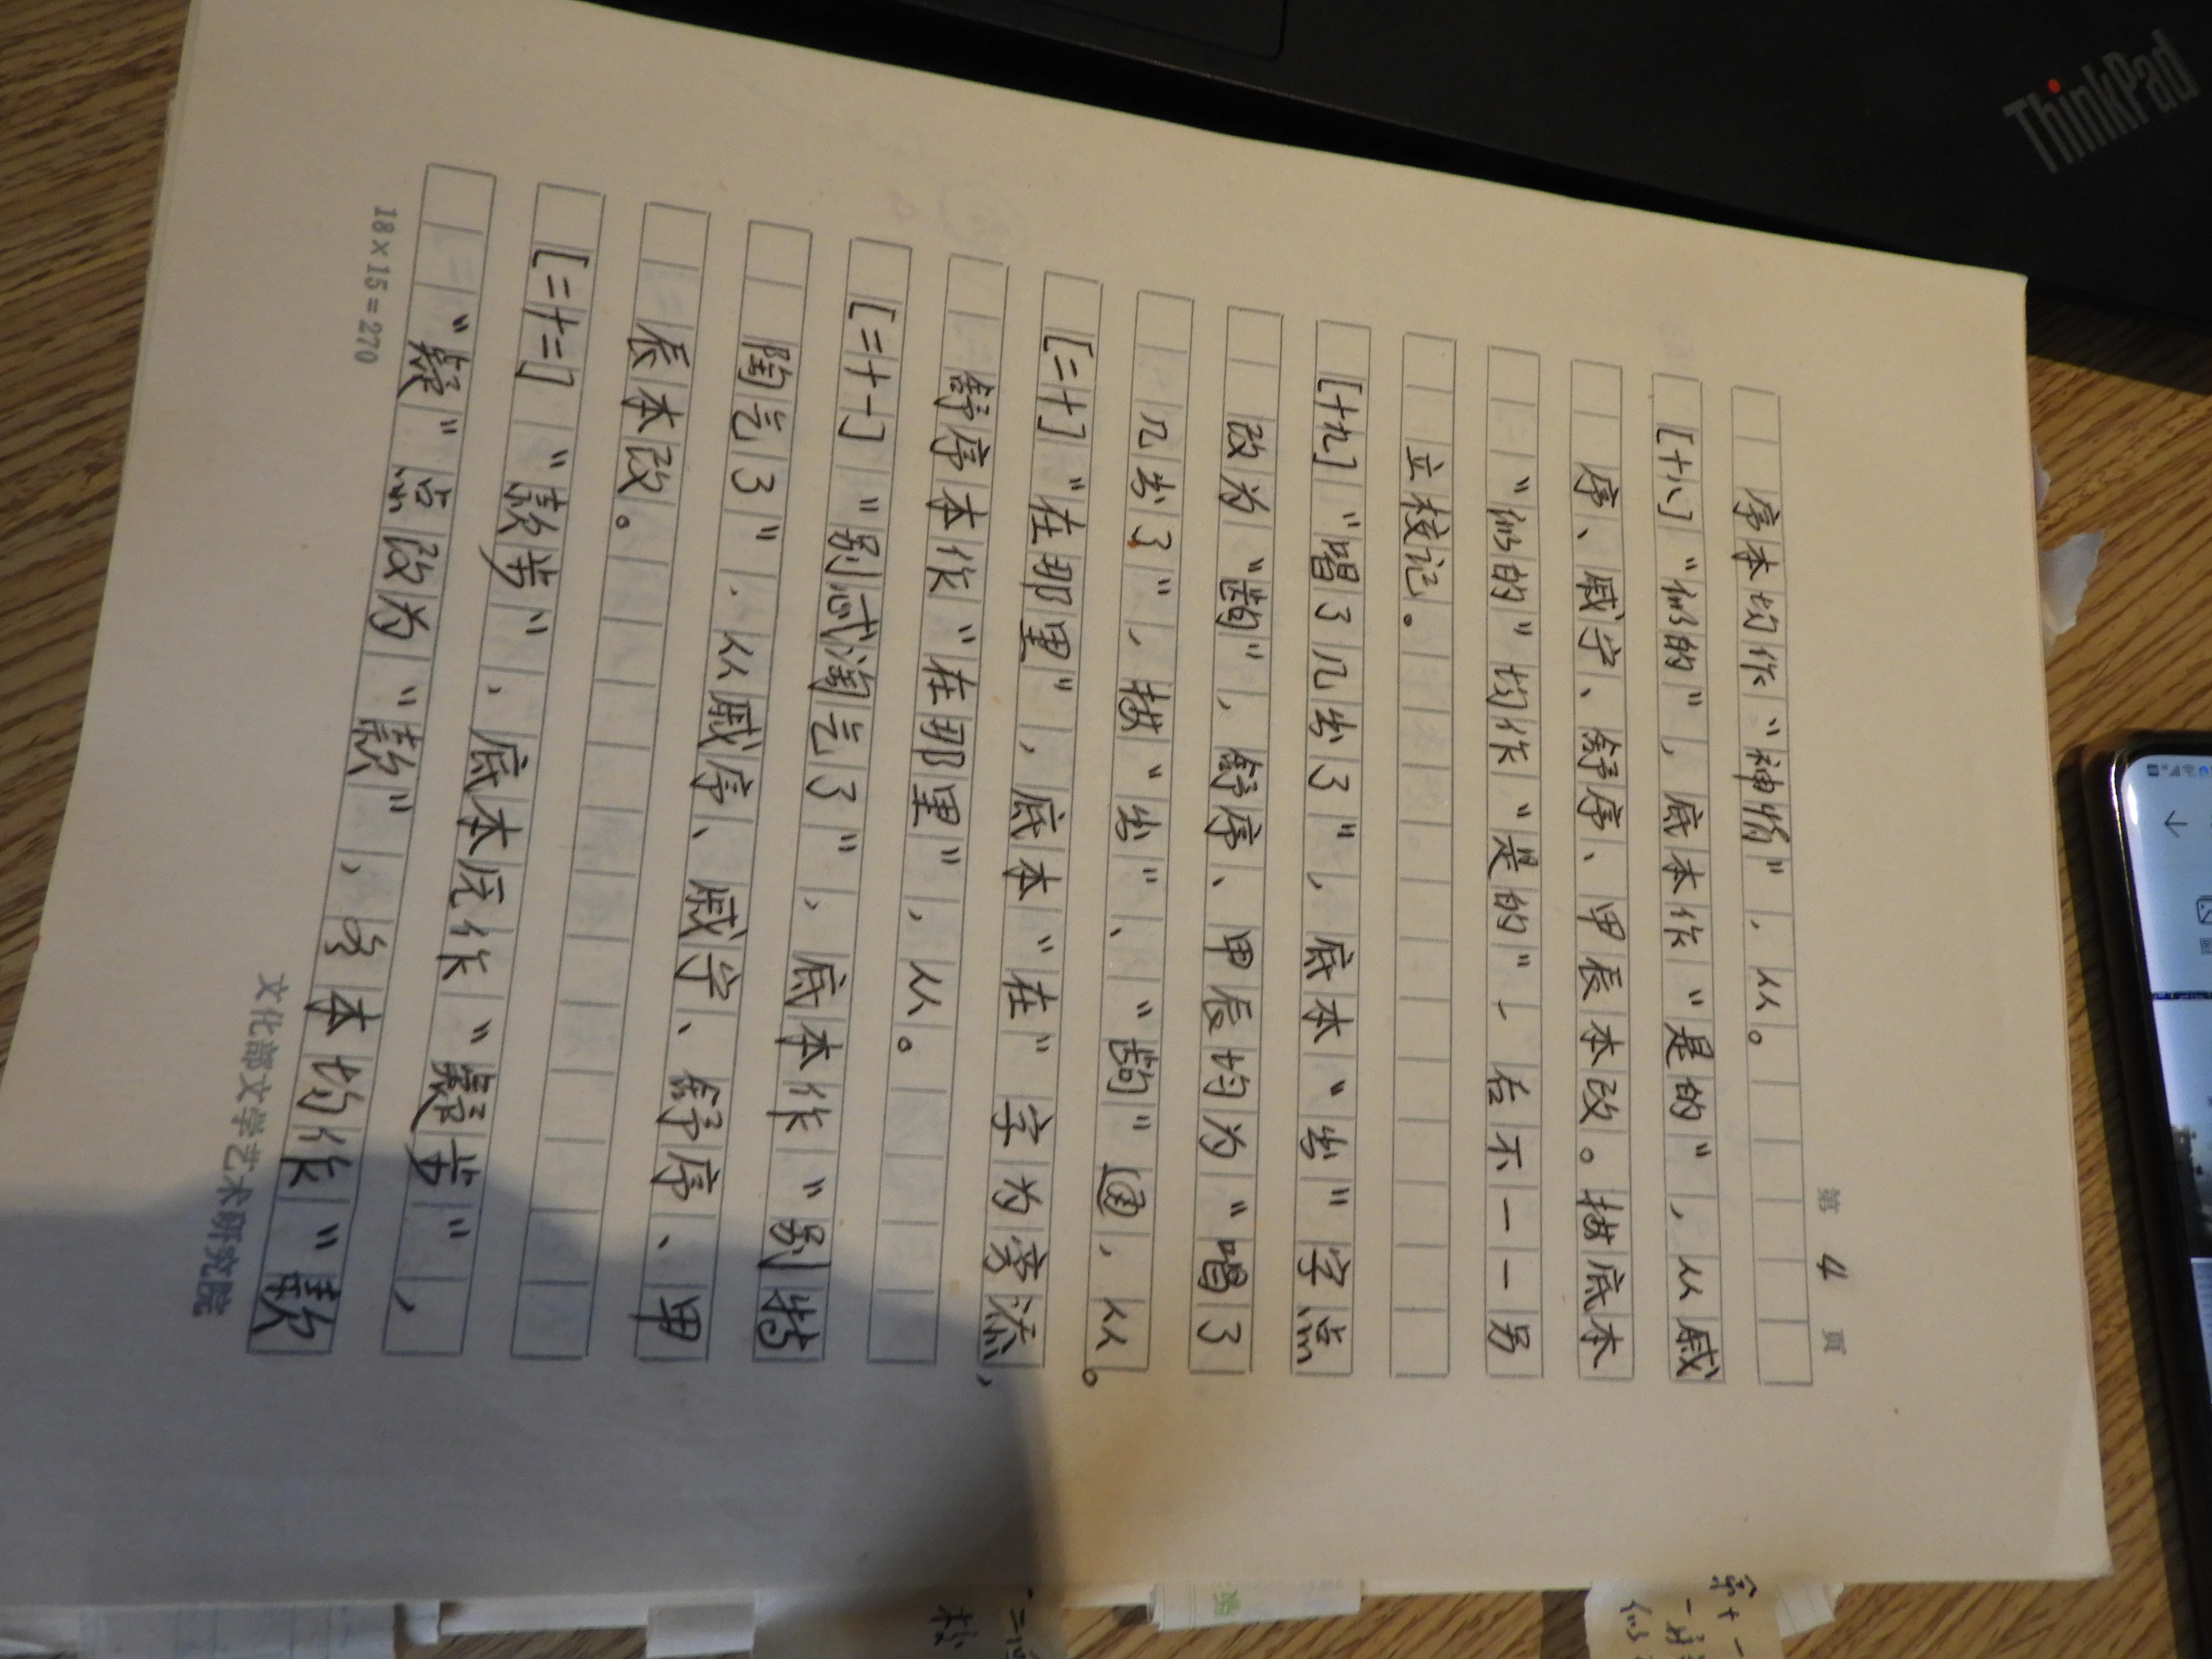 第 4 頁
序本均作“神物”，从。
[十八]“们的”，底本作“是的”，从戚
序、戚宁、舒序、甲辰本改。按底本
“们的”均作“是的”，后不一一另
立校记。
[十九]“唱了几出了”，底本“出”字点
改为“齣”，舒序、甲辰均为“唱了
几出了”，按“出”、“齣”通，从。
[二十]“在那里”，底本“在”字为旁添，
舒序本作“在那里”，从。
[二十一]“别忒淘气了”，底本作“别特
陶气了”，从戚序、戚宁、舒序、甲
辰本改。
[二十二]“款步”，底本原作“疑步”，
“疑”点改为“款”，各本均作“款
18×15=270
文化部文学艺术研究院
ThinkPad